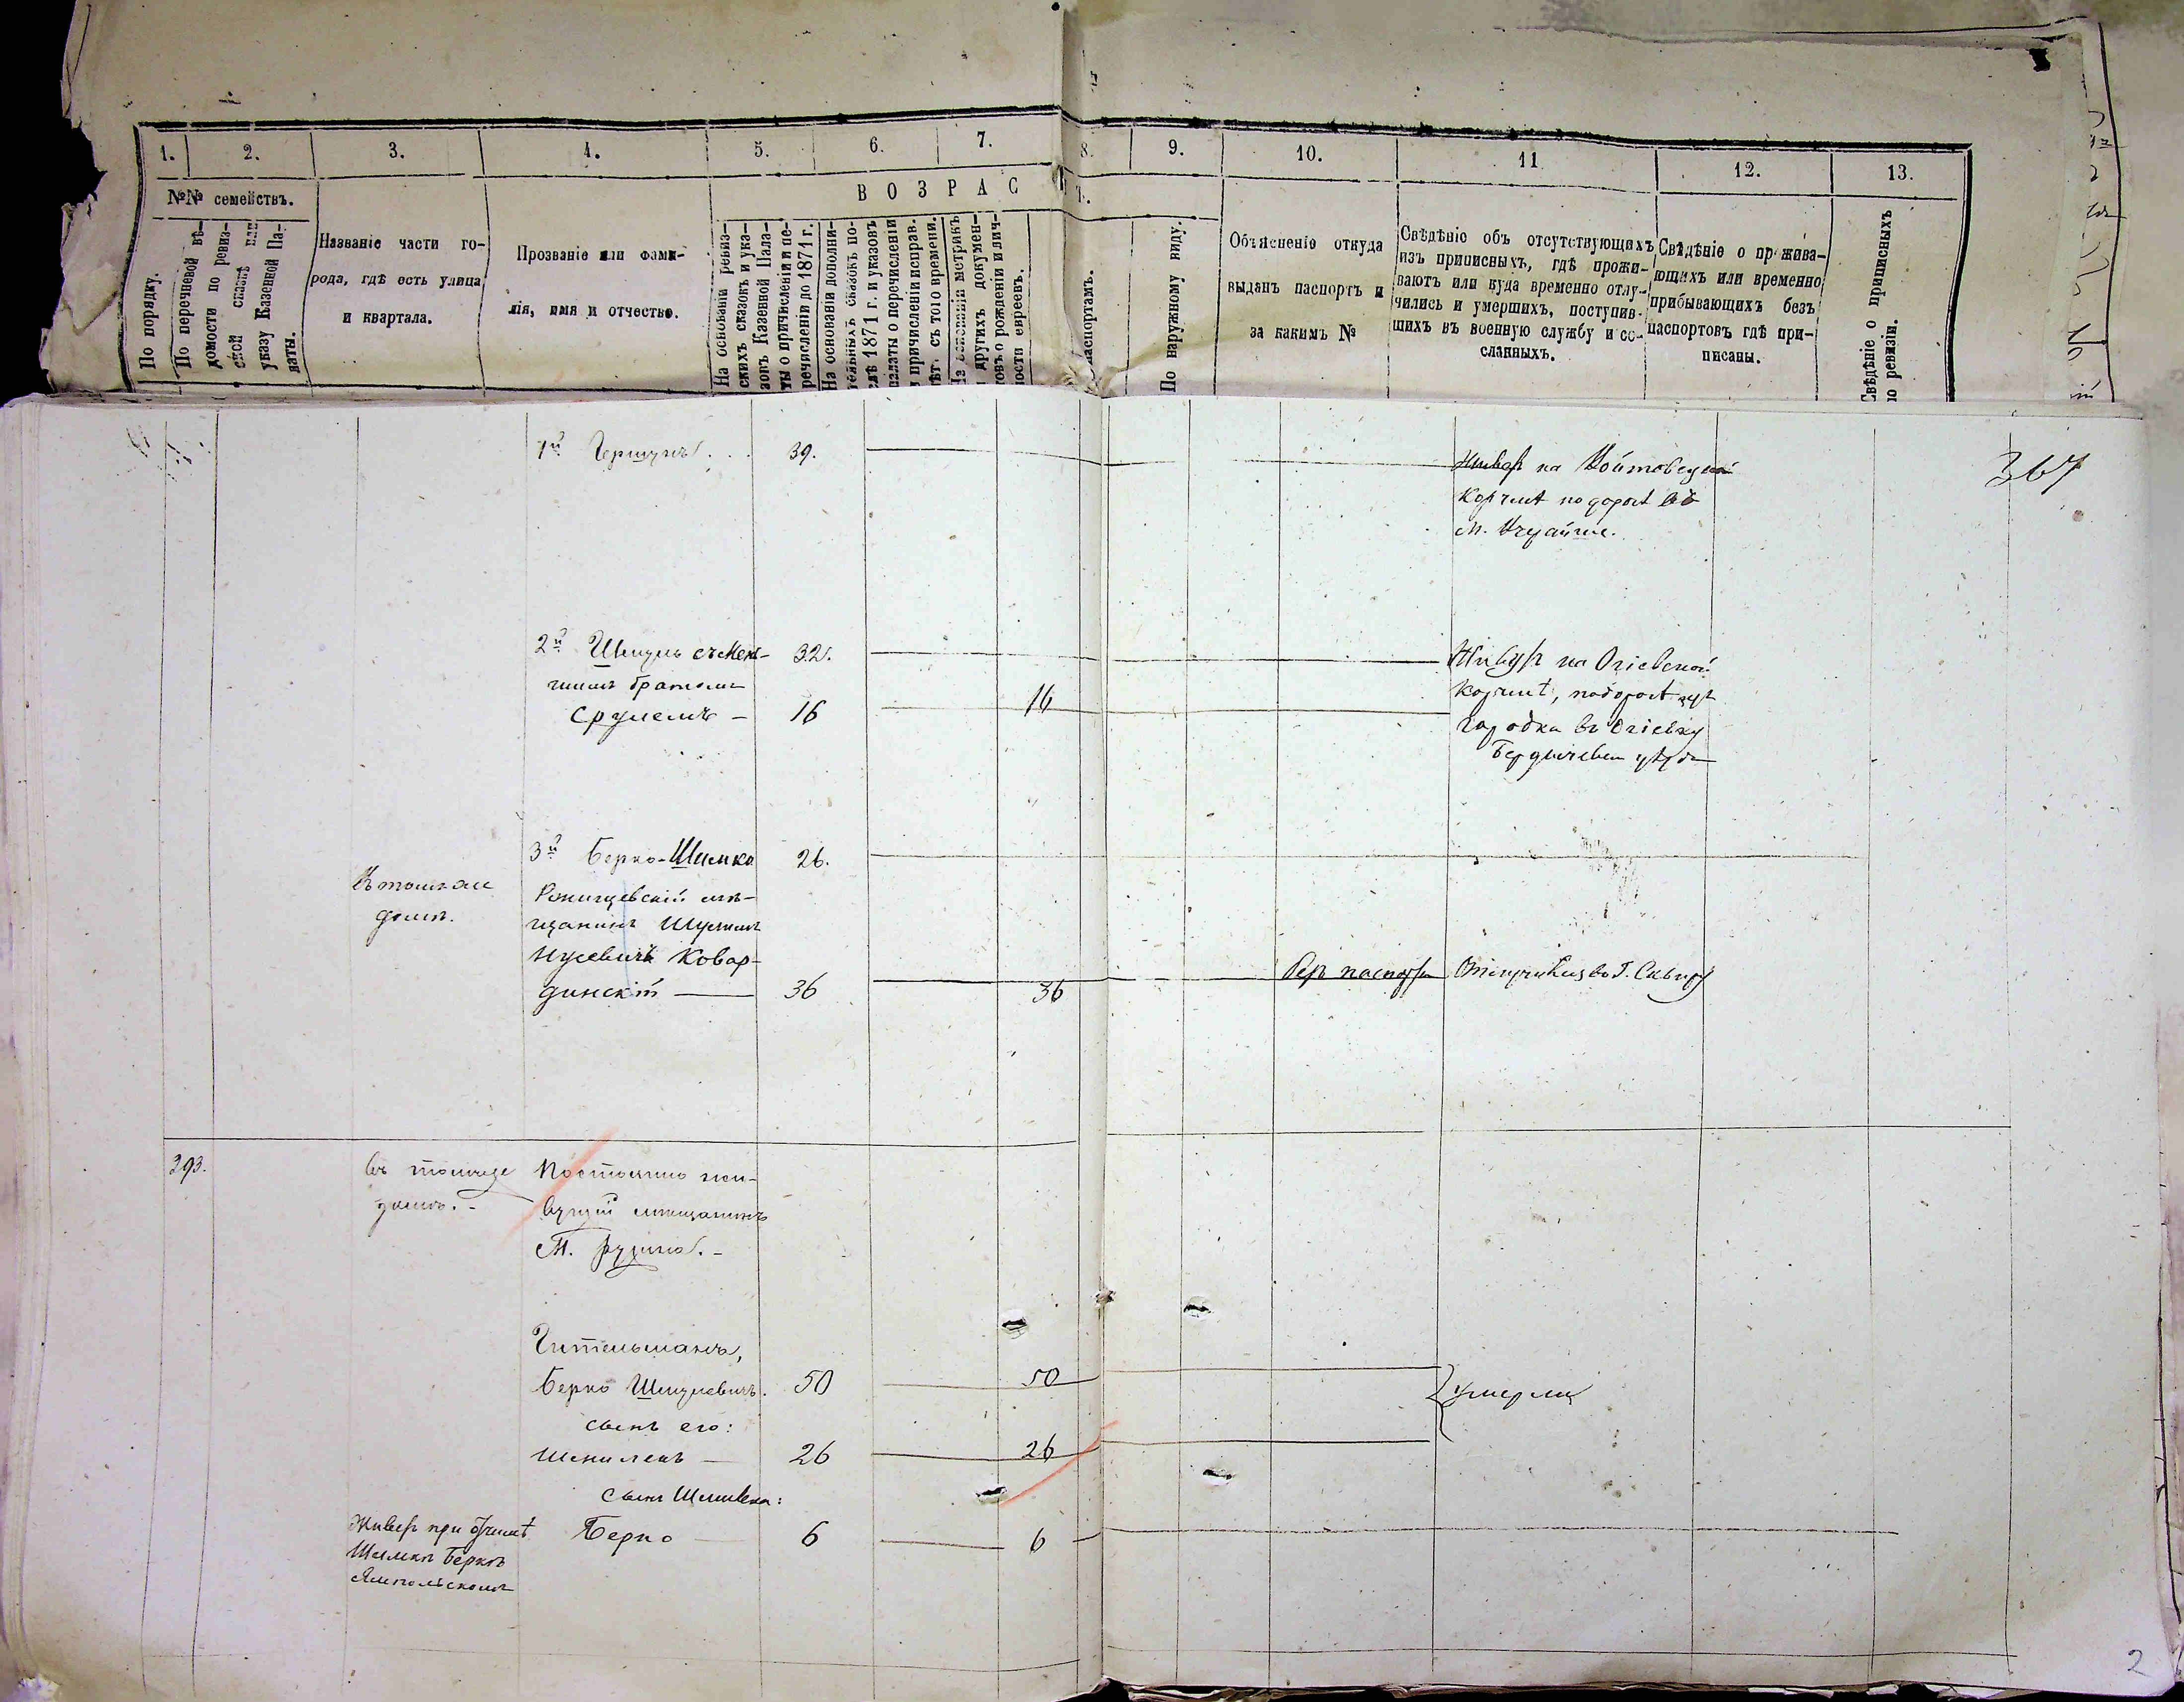 1. 2. 3. 4. 5. 6. 7. 8. 9. 10. 11. 12. 13.
№№ семействъ.
ВОЗРАСТ.
По порядку.
По перечневой вѣ-
домости по ревиз-
ской сказкѣ или
указу Казенной Па-
латы.
Названіе части го-
рода, гдѣ есть улица
и квартала.
Прозваніе или фами-
лія, имя и отчество.
На основаніи ревиз-
скихъ сказокъ и ука-
зовъ Казенной Пала-
ты о причисленіи и пе-
речисленіи до 1871 г.
На основаніи дополни-
тельныхъ сказокъ по-
слѣ 1871 г. и указовъ
палаты о перечисленіи
и причисленіи исправ.
лѣтъ съ того времени.
На основаніи метрикъ
и другихъ докумен-
товъ о рожденіи и лич-
ности евреевъ.
паспортамъ.
По наружному виду.
Объясненіе откуда
выданъ паспортъ и
за какимъ №
Свѣдѣніе объ отсутствующихъ
изъ приписныхъ, гдѣ прожи-
ваютъ или куда временно отлу-
чились и умершихъ, поступив-
шихъ въ военную службу и со-
сланныхъ.
Свѣдѣніе о прожива-
ющихъ или временно
прибывающихъ безъ
паспортовъ гдѣ при-
писаны.
Свѣдѣніе о приписныхъ
по ревизіи.
367
1й Гершунъ . . . 39.
на
Корчмѣ по дорогѣ въ
м.
2й Шмуль съ мень-
шимъ братомъ 32.
Срулемъ — 16 16
Живутъ на Огіевской
Корчмѣ, по дорогѣ изъ
Городка въ Огіевку
Бердичевск уѣзда
3й Берко-Шимка 26.
Въ томъ же
домѣ.
мѣ-
щанинъ
Ковар-
динскій — 36 36
Безъ паспорта
Отлучился въ г. Сквиру
393.
въ томъ же
домѣ. -
Постоянно жи-
вущій мѣщанинъ
М. Ружина. -
Гительманъ,
Берко Шмулевичъ. 50 50
умерли
сынъ его:
26 26
сынъ
Берко 6 6
Живетъ при отчимѣ
Шимкѣ Беркѣ
Ямпольскомъ
2